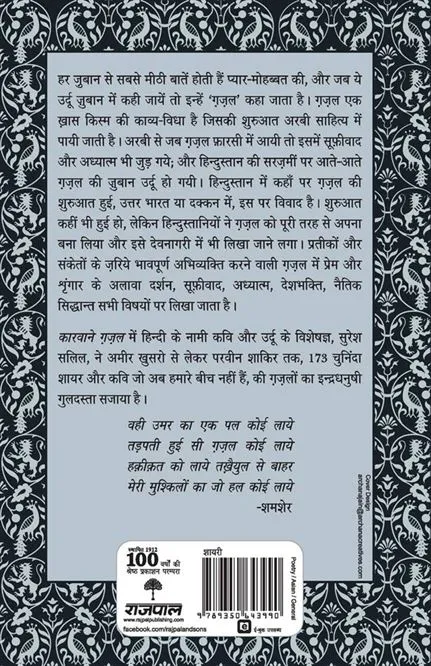 हर ज़ुबान से सबसे मीठी बातें होती हैं प्यार-मोहब्बत की, और जब ये
उर्दू ज़ुबान में कही जायें तो इन्हें ‘ग़ज़ल’ कहा जाता है। ग़ज़ल एक
ख़ास किस्म की काव्य-विधा है जिसकी शुरुआत अरबी साहित्य में
पायी जाती है। अरबी से जब ग़ज़ल फ़ारसी में आयी तो इसमें सूफ़ीवाद
और अध्यात्म भी जुड़ गये; और हिन्दुस्तान की सरज़मीं पर आते-आते
ग़ज़ल की ज़ुबान उर्दू हो गयी। हिन्दुस्तान में कहाँ पर ग़ज़ल की
शुरुआत हुई, उत्तर भारत या दक्कन में, इस पर विवाद है। शुरुआत
कहीं भी हुई हो, लेकिन हिन्दुस्तानियों ने ग़ज़ल को पूरी तरह से अपना
बना लिया और इसे देवनागरी में भी लिखा जाने लगा। प्रतीकों और
संकेतों के ज़रिये भावपूर्ण अभिव्यक्ति करने वाली ग़ज़ल में प्रेम और
शृंगार के अलावा दर्शन, सूफ़ीवाद, अध्यात्म, देशभक्ति, नैतिक
सिद्धान्त सभी विषयों पर लिखा जाता है।
कारवाने ग़ज़ल में हिन्दी के नामी कवि और उर्दू के विशेषज्ञ, सुरेश
सलिल, ने अमीर खुसरो से लेकर परवीन शाकिर तक, 173 चुनिंदा
शायर और कवि जो अब हमारे बीच नहीं हैं, की ग़ज़लों का इन्द्रधनुषी
गुलदस्ता सजाया है।
वही उमर का एक पल कोई लाये
तड़पती हुई सी ग़ज़ल कोई लाये
हक़ीक़त को लाये तख़ैयुल से बाहर
मेरी मुश्किलों का जो हल कोई लाये
-शमशेर
Cover Design
archanajain@archanacreatives.com
स्थापित 1912
100 वर्षों की
श्रेष्ठ प्रकाशन परम्परा
राजपाल
www.rajpalpublishing.com
facebook.com/rajpalandsons
शायरी
9 789350 643990
ई-बुक उपलब्ध
Poetry / Asian / General